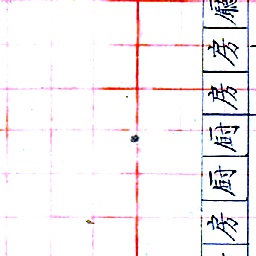 房
房
厨
厨
房